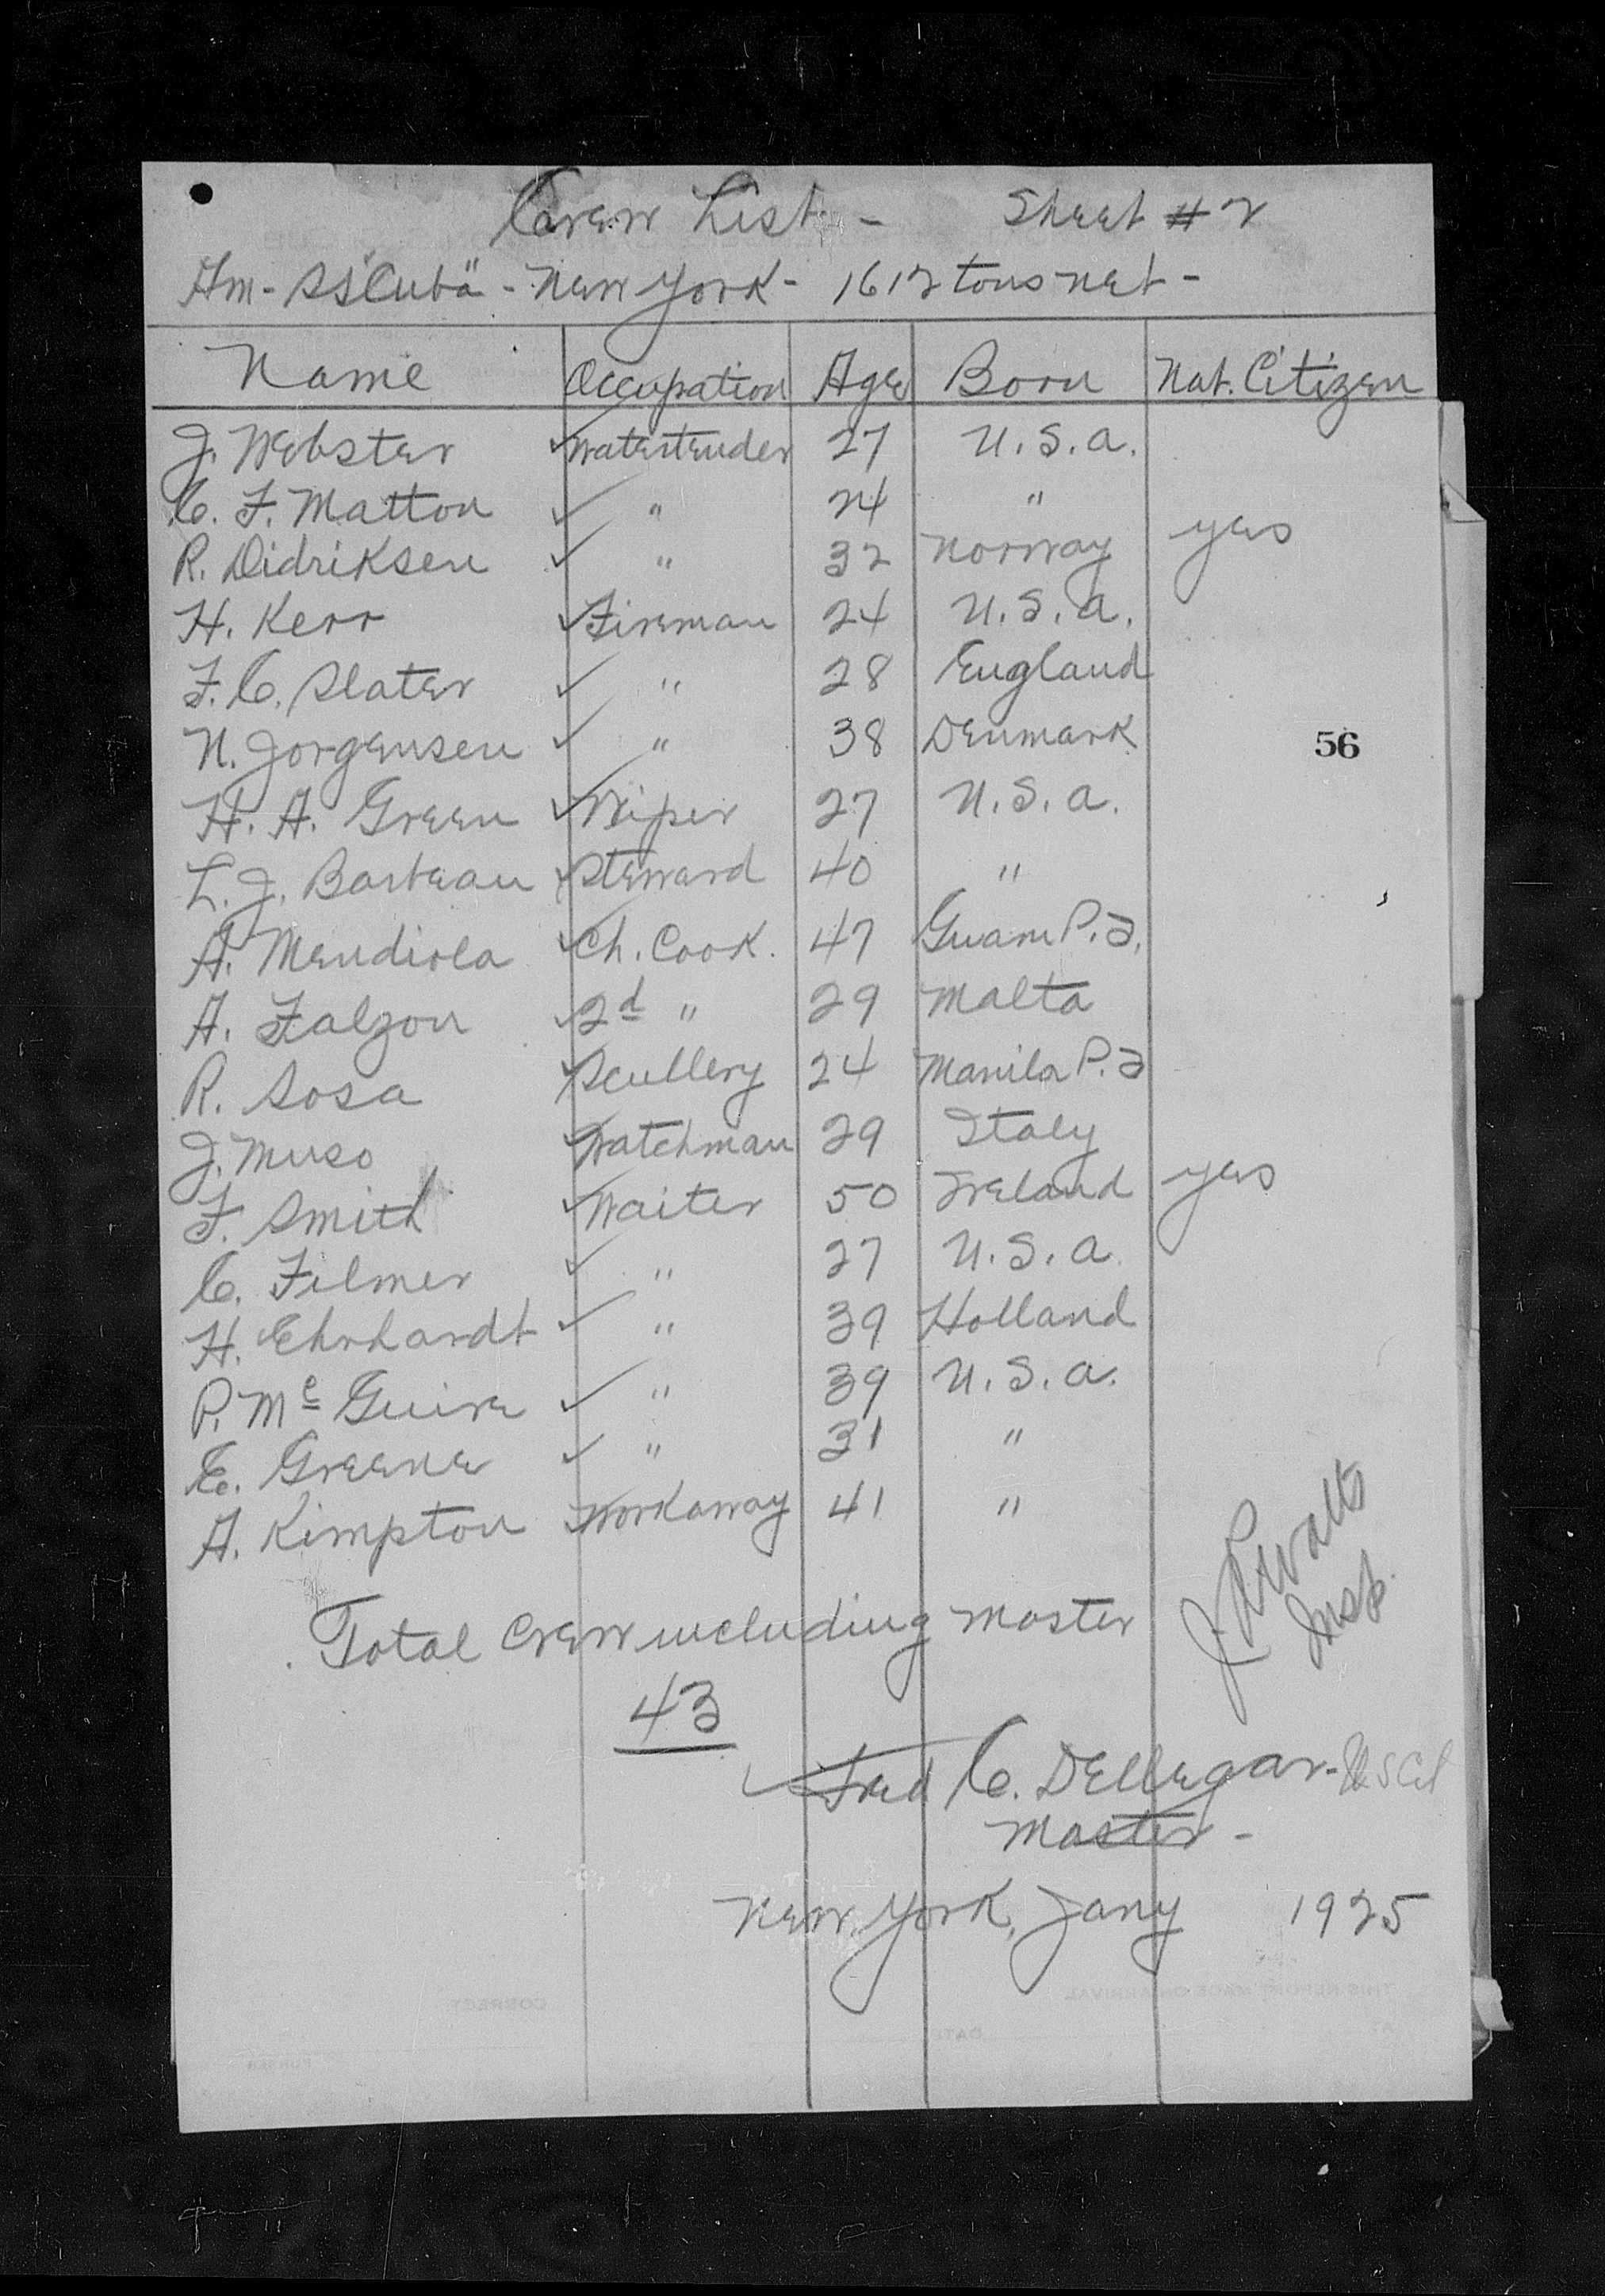 Crew List - Sheet # 2
Am - SS "Cuba" - New York - 1612 tons net -
Name Occupation Age Born Nat. Citizen
J. Webster ✓ Watertender 27 U.S.a.
C. F. Matton ✓ " 24 "
R. Didriksen ✓ " 32 Norway yes
H. Kerr ✓ Fireman 24 U.S.a.
F. C. Slater ✓ " 28 England
N. Jorgensen ✓ " 38 Denmark
56
H. A. Green ✓ Wiper 27 U.S.a.
L. J. Barbeau ✓ Steward 40 "
A. Mendiola ✓ Ch. Cook. 47 Guam P.I.
A. Falzon ✓ 2d " 29 Malta
R. Sosa ✓ Scullery 24 Manila P.I
J. Muso ✓ Watchman 29 Italy
F. Smith ✓ Waiter 50 Ireland yes
C. Filmer ✓ " 27 U.S.a.
H. Ehrhardt ✓ " 39 Holland
P. Mc Guire ✓ " 39 U.S.a.
E. Greene ✓ " 31 "
A. Kimpton ✓ Workaway 41 "
Insp.
Total Crew including Master
43
Fred C. Dellegar - USCit
Master -
New York, Jany 1925